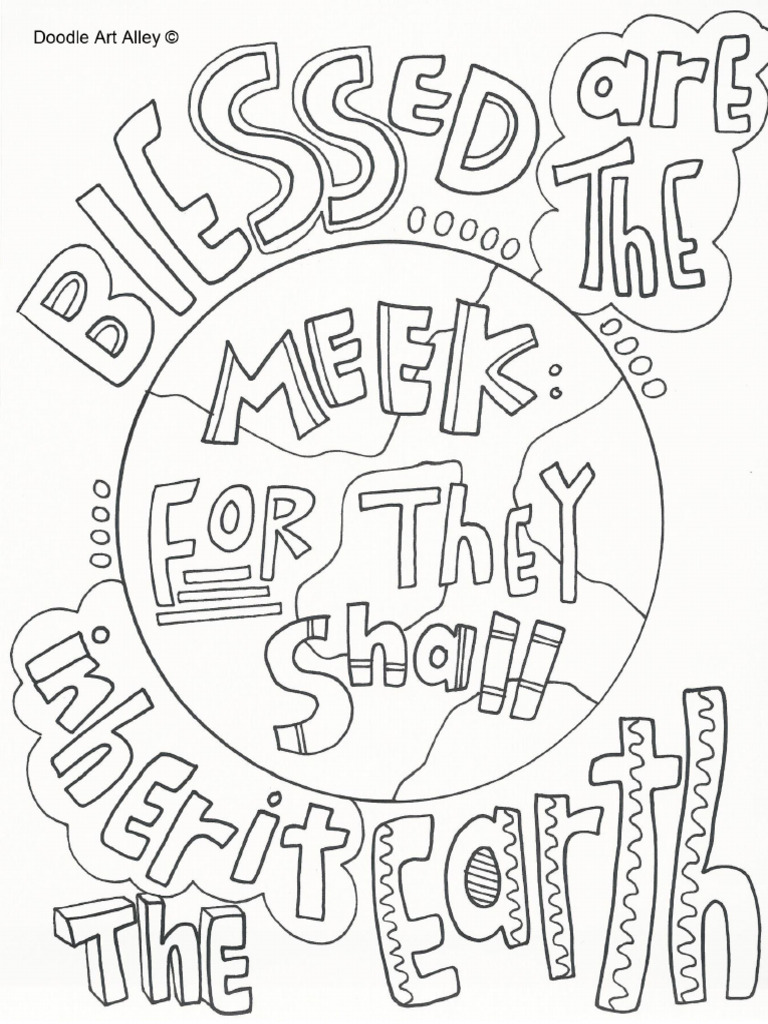 Doodle Art Alley ©
BLESSED
arE
ThE
MEEK:
FOR ThEY
Shall
inhErit
ThE Earth